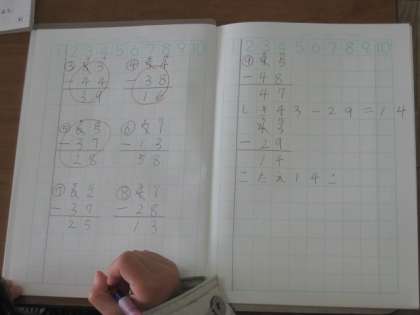 1 2 3 4 5 6 7 8 9 10
③ 3
- 4 4
3 9
④ 4
- 3 8
1 6
⑤ 5
- 3 7
2 8
⑥ 1
- 1 3
5 8
⑦ 2
- 3 7
2 5
⑧ 1
- 2 8
1 3
1 2 3 4 5 6 7 8 9 10
⑨ 5
- 4 8
4 7
4 3 - 2 9 = 1 4
4 3
- 2 9
1 4
こたえ 1 4 こ